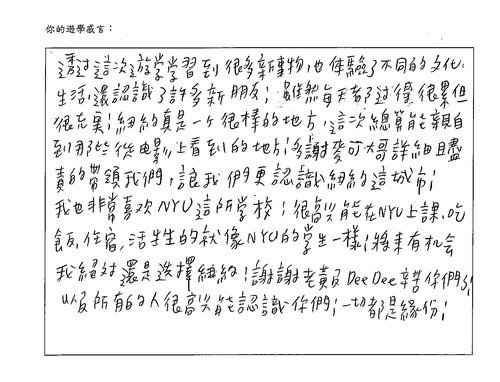 你的遊學感言：
透過這次遊學學習到很多新事物，也体驗了不同的文化、
生活，還認識了許多新朋友；雖然每天都過得很累但
很充實；紐約真是一个很棒的地方，這次總算能親自
到那些從电影上看到的地方；多謝麥可大哥詳細且盡
責的帶領我們，讓我們更認識紐約這城市；
我也非常喜欢NYU這所學校；很高興能在NYU上課、吃
飯、住宿，活生生的就像NYU的學生一樣；將来有机会
我絕對還是选擇紐約；謝謝老黃及DeeDee辛苦你們了；
以及所有的人很高興能認識你們；一切都是緣份；